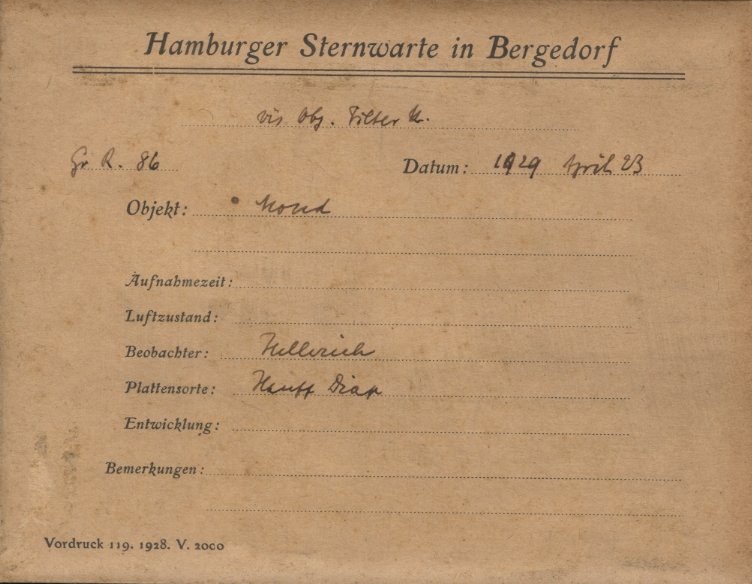 Hamburger Sternwarte in Bergedorf
vis Obj. Filter
Gr R. 86 Datum: 1929 April 23
Objekt: Mond
Aufnahmezeit:
Luftzustand:
Beobachter: Hellerich
Plattensorte: Hauff Diap
Entwicklung:
Bemerkungen:
Vordruck 119. 1928. V. 2000